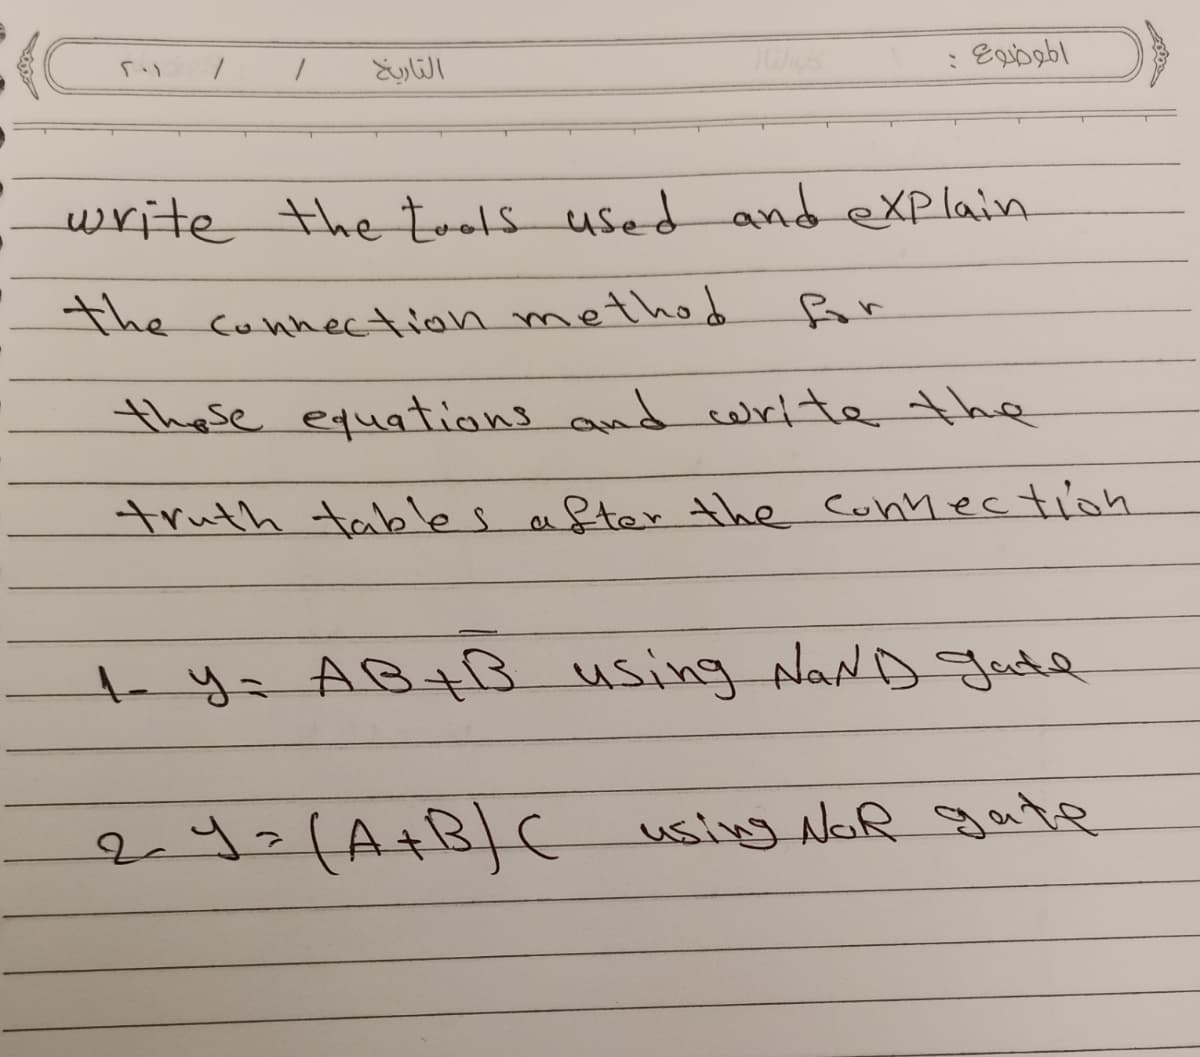 الموضوع : التاريخ / / ٢٠١
write the tools used and explain
the connection method for
these equations and write the
truth tables after the connection
1- y = AB+B̅ using NaND gate
2- y = (A+B)C using NoR gate